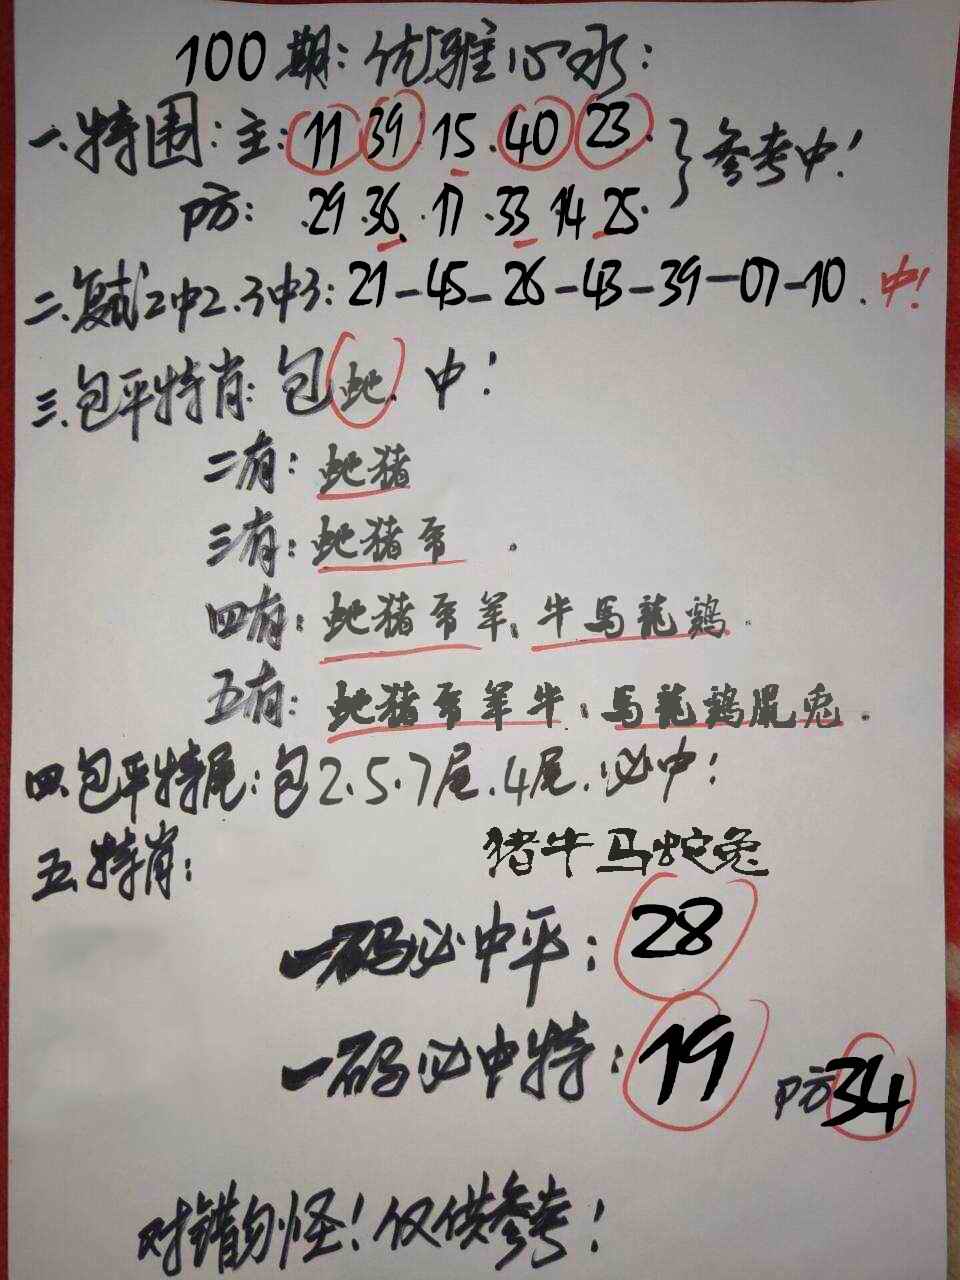 100期:优雅心水:
一.特围:主:11 39·15·40 23· }参考中!
防:·29·36·17·33 14 25·
二.复式2中2.3中3:21-45-26-43-39-07-10.中!
三.包平特肖:包蛇.中!
二有:蛇猪
三有:蛇猪帝.
四有:蛇猪帝羊;牛馬龍鷄.
五有:蛇猪帝羊牛;馬龍鷄鼠兔.
四.包平特尾:包2.5.7尾.4尾.必中!
五.特肖: 猪牛马蛇兔
一码必中平:28
一码必中特:19 防34
对错勿怪!仅供参考!